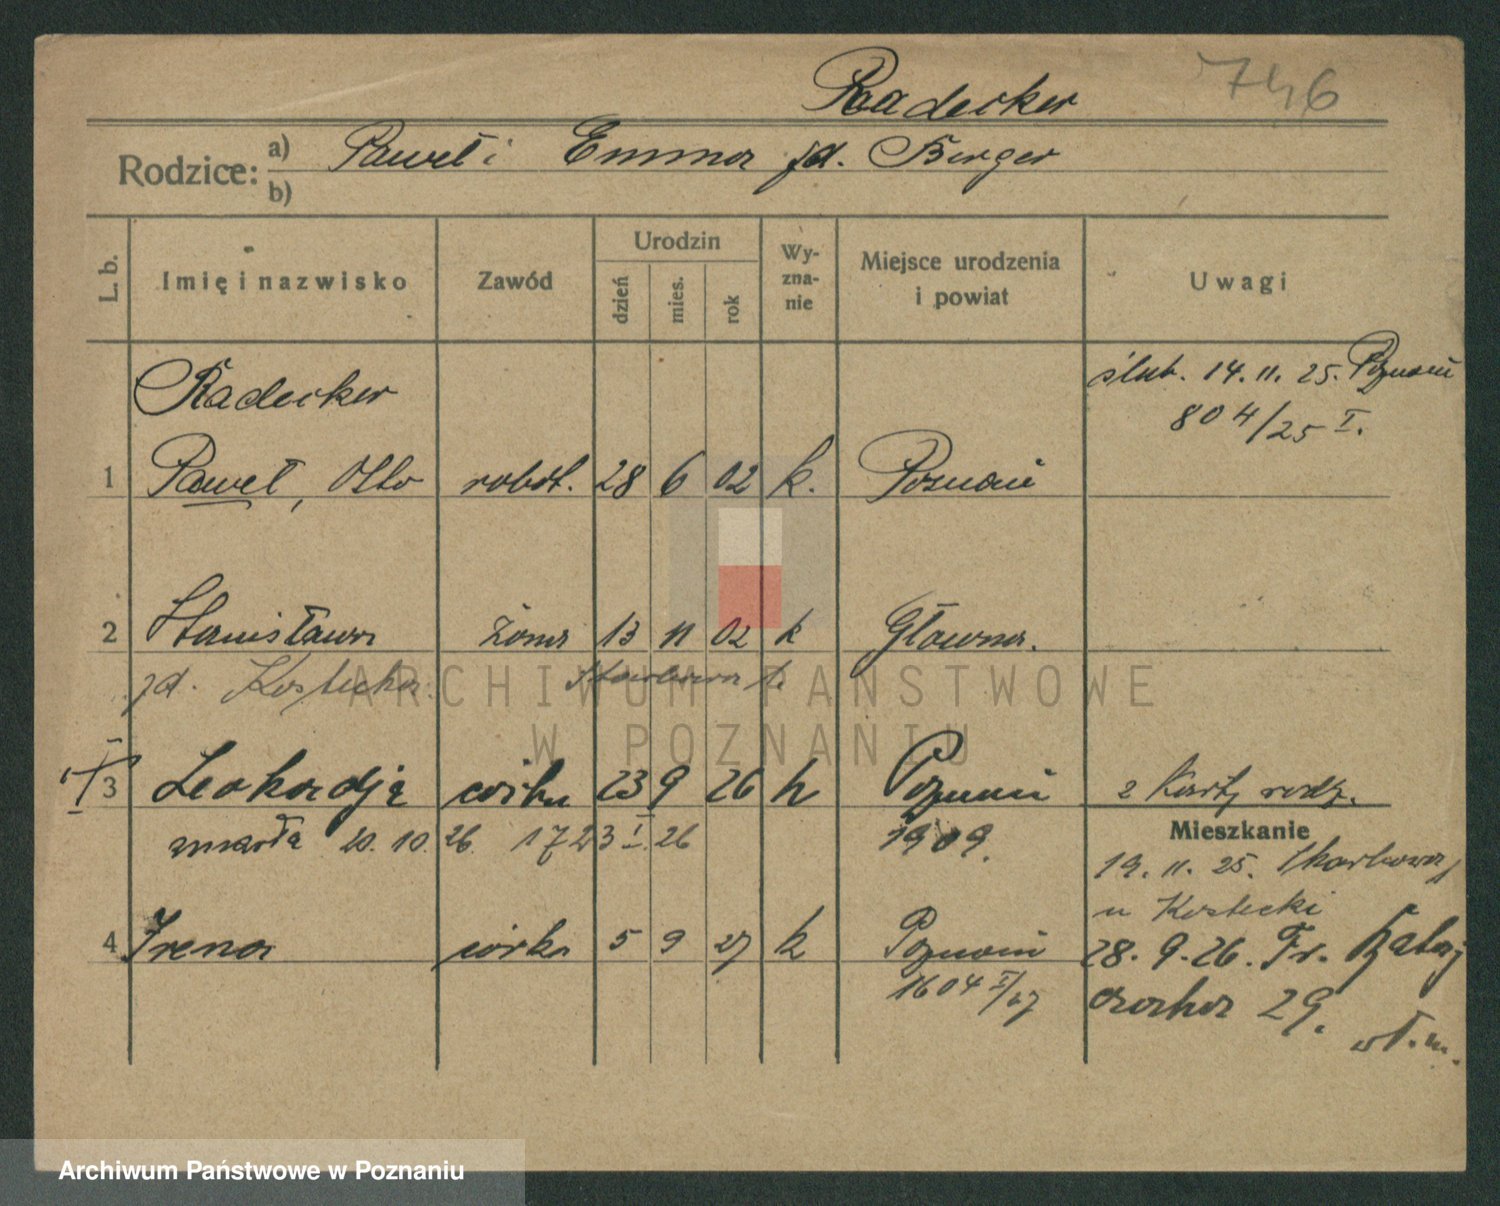 746
Radecker
Rodzice: a) Paweł i Emma zd. Berger
b)
L. b. Imię i nazwisko Zawód Urodzin dzień mies. rok Wyznanie Miejsce urodzenia i powiat Uwagi
Radecker
ślub. 14.11.25. Poznań
804/25 I.
1 Paweł, Otto robot. 28 6 02 k. Poznań
2 Stanisława żona 13 11 02 k Główna.
zd. Kostecka
3 Leokadja córka 23 9 26 k Poznań 2 Karty rodz.
zmarła 20.10.26. 1723 I. 26 1909.
Mieszkanie
19.11.25. Skarbowa
u Kostecki
4 Irena córka 5 9 27 k Poznań
1604 I/27
28.9.26. Fr. Ratajczaka 29.
wł. m.
ARCHIWUM PAŃSTWOWE
W POZNANIU
Archiwum Państwowe w Poznaniu